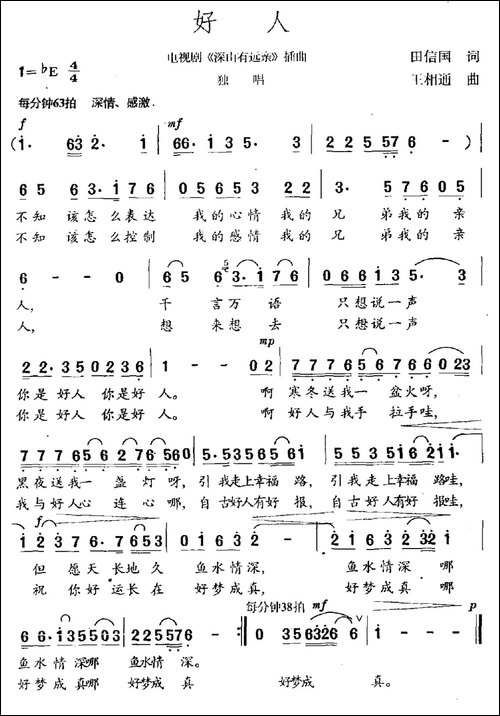 好 人
电视剧《深山有远亲》插曲
田信国 词
1=♭E 4/4
独 唱
王相通 曲
每分钟63拍 深情、感激
f mf
(i· 63 2· i | 66· 13 5· 3 | 22 2 5 57 6 - )
6 5 6 3· 1 7 6 | 0 5 6 5 3 2 2 | 3· 5 7 6 0 5 |
不知 该怎么表达 我的心情 我的 兄 弟我的 亲
不知 该怎么控制 我的感情 我的 兄 弟我的 亲
6 - - 0 | 6 5 6 3· 1 7 6 | 0 6 6 1 3 5· 3 |
人, 千 言万 语 只想说一声
人, 想 来想 去 只想说一声
mp
2 2· 3 5 0 2 3 6 | 1 - - 0 2 | 7 7 7 6 5 6 7 6 6 0 23 |
你是 好人 你是 好 人。 啊 寒冬送我一 盆火呀,
你是 好人 你是 好 人。 啊 好人与我手 拉手哇,
7 7 7 6 5 6 7 2 7 6· 5 6 0 | 5· 5 3 5 6 5 6 1 | 5 5 3 5 1 6 2 1 1· |
黑夜送我一 盏 灯 呀, 引我走上幸福 路, 引我走上幸福 路哇,
我与好人心 连 心 哪, 自古好人有好 报, 自古好人有好 报哇,
f
1 2 3 7 6· 1 2 3 | 0 1 6 3 2 - | 0 3 1 6 3 2 32 1 |
但 愿天 长地久 鱼水情深 鱼水情深 哪
祝 你好 运长在 好梦成真, 好梦成真 哪
每分钟38拍 mf p
6 6· 1 3 5 5 0 3 | 2 2 5 5 7 6 - :‖ 0 3 5 6 3 2 6 6 ∨ | 1 - - - ‖
鱼水 情 深哪 鱼水情 深。
好梦 成 真哪 好梦成 真 好梦成 真。